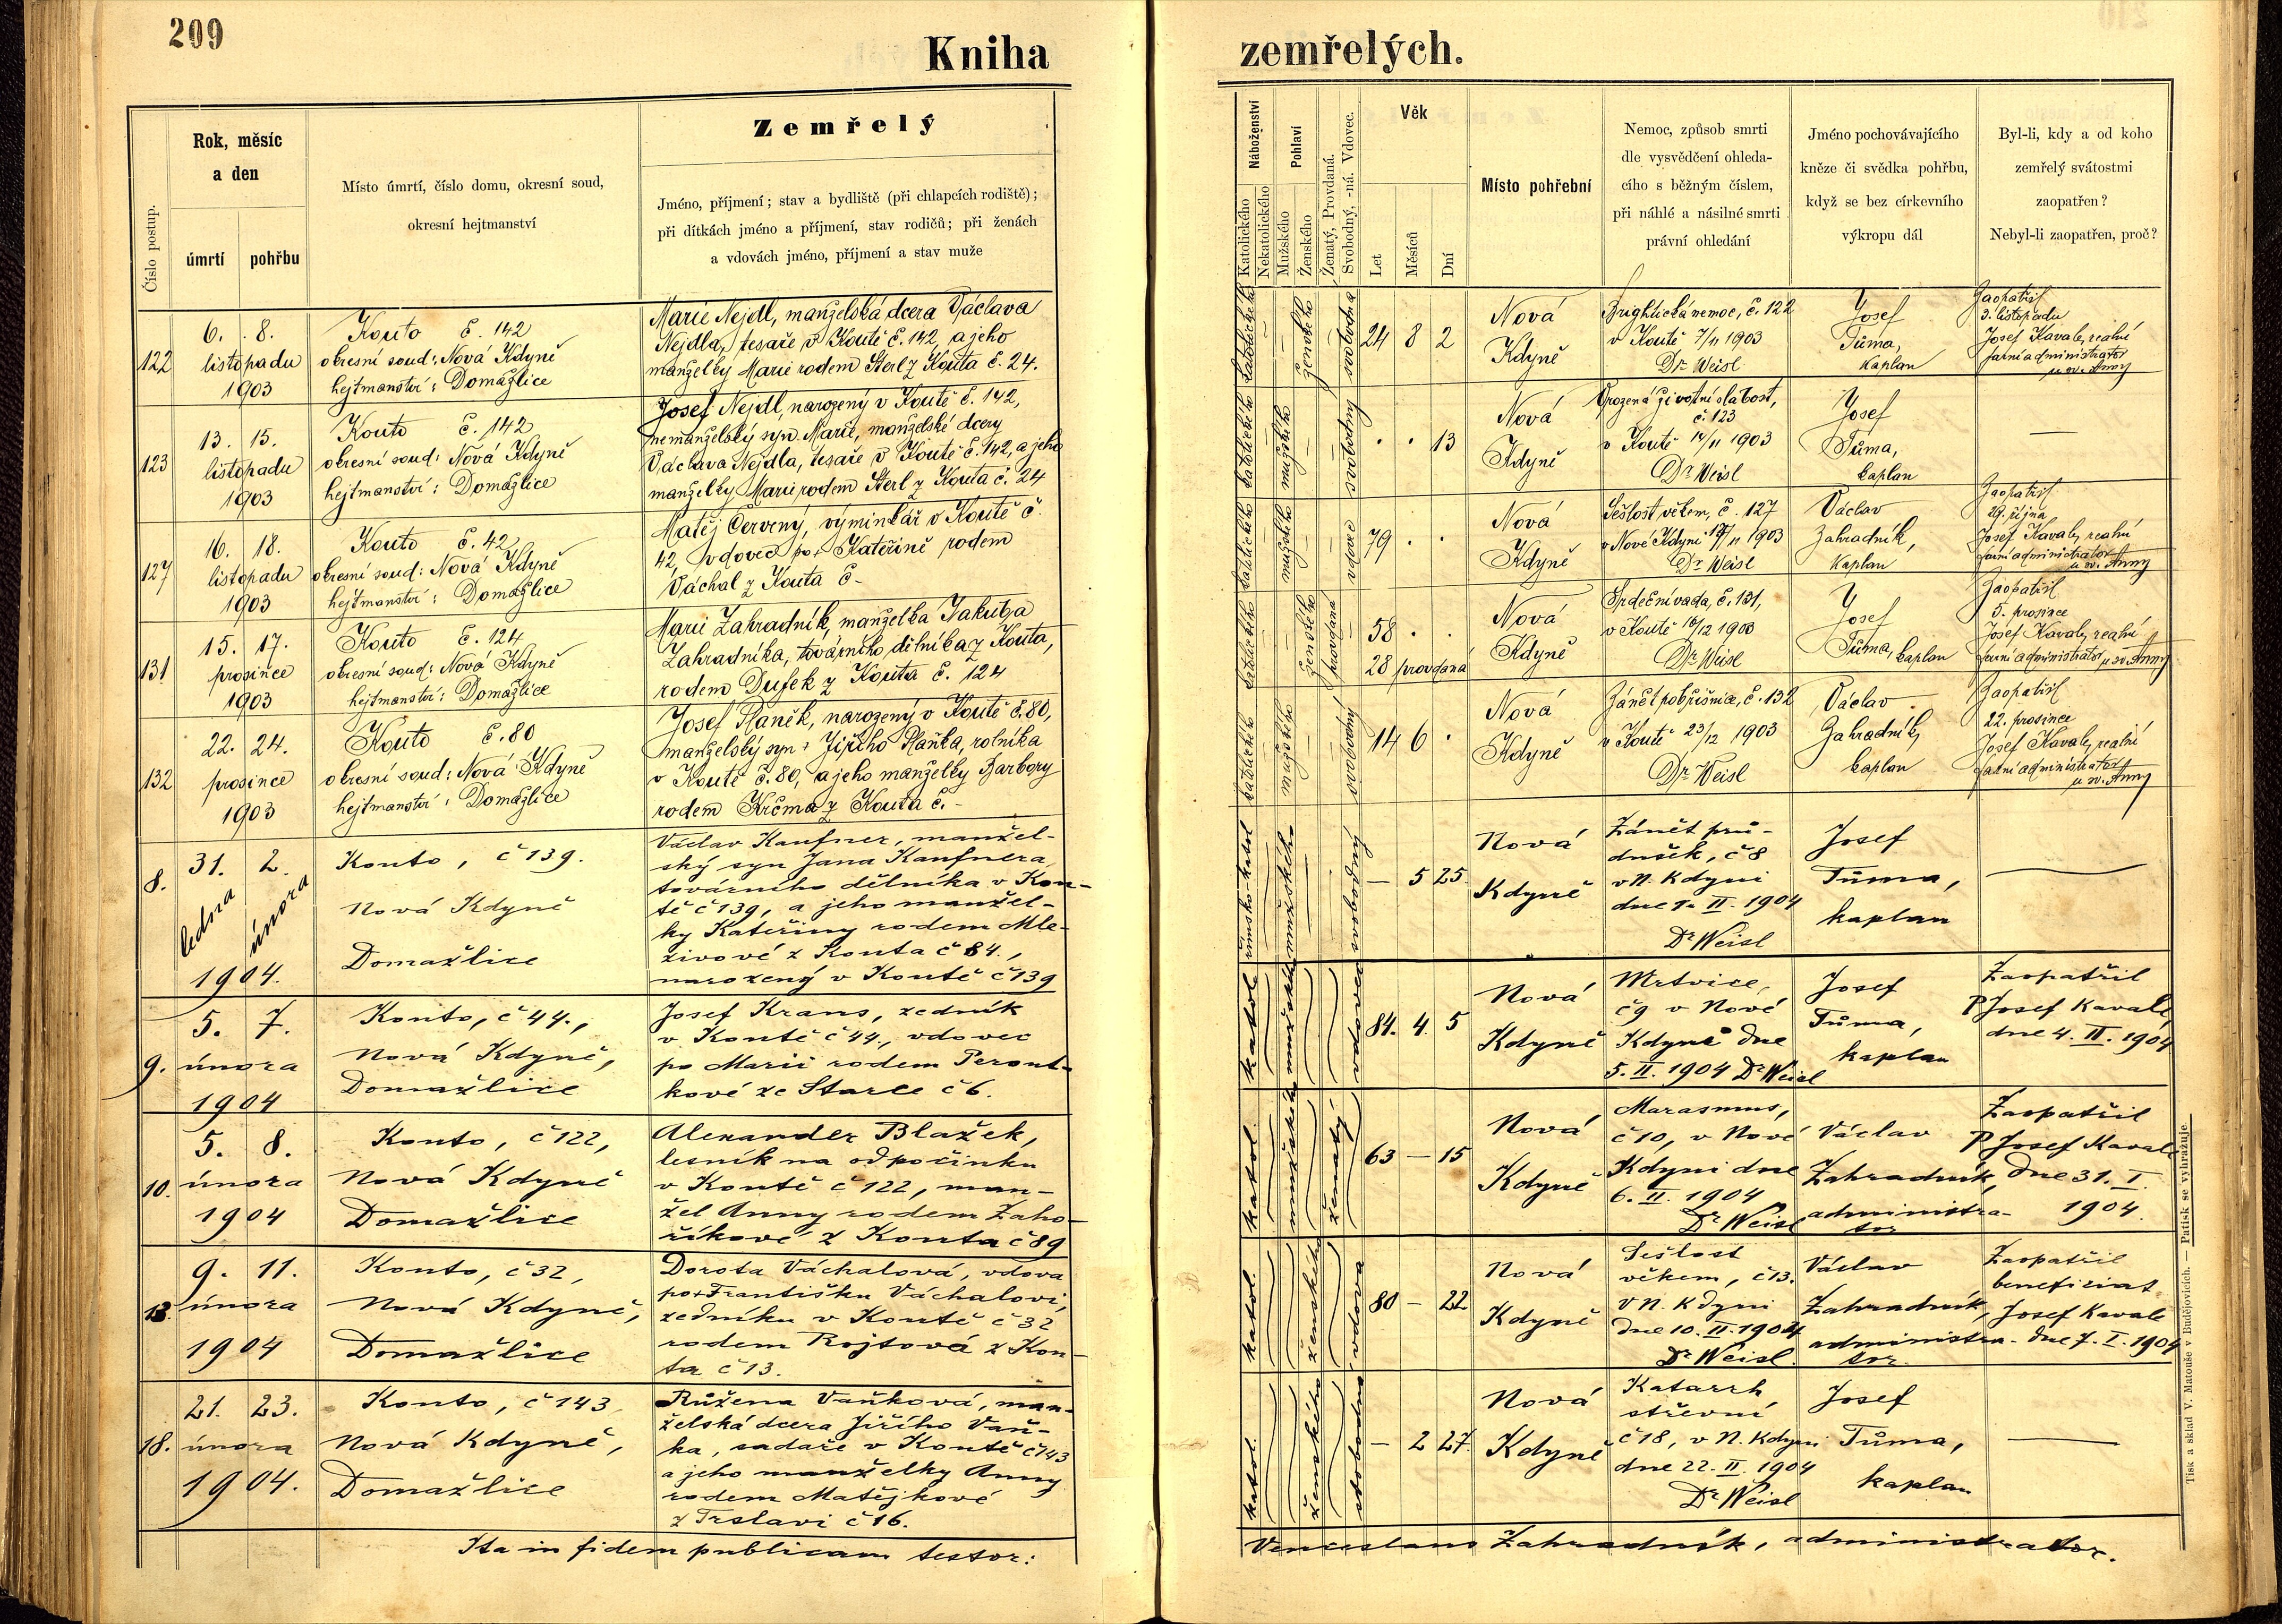 209
Kniha zemřelých.
Číslo postup.
Rok, měsíc
a den
úmrtí
pohřbu
Místo úmrtí, číslo domu, okresní soud,
okresní hejtmanství
Zemřelý
Jméno, příjmení; stav a bydliště (při chlapcích rodiště);
při dítkách jméno a příjmení, stav rodičů; při ženách
a vdovách jméno, příjmení a stav muže
Náboženství
Katolického
Nekatolického
Pohlaví
Mužského
Ženského
Ženatý, Provdaná.
Svobodný, -ná. Vdovec.
Věk
Let
Měsíců
Dní
Místo pohřební
Nemoc, způsob smrti
dle vysvědčení ohleda-
cího s běžným číslem,
při náhlé a násilné smrti
právní ohledání
Jméno pochovávajícího
kněze či svědka pohřbu,
když se bez církevního
výkropu dál
Byl-li, kdy a od koho
zemřelý svátostmi
zaopatřen?
Nebyl-li zaopatřen, proč?
122
6. 8.
listopadu
1903
Kouto č. 142
okresní soud: Nová Kdyně
hejtmanství: Domažlice
Marie Nejdl, manželská dcera Václava
Nejdla, tesaře v Koutě č. 142, a jeho
manželky Marie rodem Sterl z Kouta č. 24.
katolického
ženského
svobodná
24 8 2
Nová
Kdyně
Brightická nemoc, č. 122
v Koutě 7/11 1903
Dr Weisl
Josef
Tůma,
kaplan
Zaopatřil
3. listopadu
Josef Kavale, reální
farní administrator
u sv. Anny
123
13. 15.
listopadu
1903
Kouto č. 142
okresní soud: Nová Kdyně
hejtmanství: Domažlice
Josef Nejdl, narozený v Koutě č. 142,
nemanželský syn Marie, manželské dcery
Václava Nejdla, tesaře v Koutě č. 142, a jeho
manželky Marie rodem Sterl z Kouta č. 24
katolického
mužského
svobodný
. . 13
Nová
Kdyně
Vrozená životní slabost,
č. 123
v Koutě 14/11 1903
Dr Weisl
Josef
Tůma,
kaplan
—
127
16. 18.
listopadu
1903
Kouto č. 42
okresní soud: Nová Kdyně
hejtmanství: Domažlice
Matěj Červený, výminkář v Koutě č.
42, vdovec po + Kateřině rodem
Váchal z Kouta č -
katolického
mužského
vdovec
79 . .
Nová
Kdyně
Sešlost věkem, č. 127
v Nové Kdyni 17/11 1903
Dr Weisl
Václav
Zahradník,
kaplan
Zaopatřil
29. října
Josef Kavale, reální
farní administrator
u sv. Anny
131
15. 17.
prosince
1903
Kouto č. 124
okresní soud: Nová Kdyně
hejtmanství: Domažlice
Marie Zahradník, manželka Jakuba
Zahradníka, továrního dělníka z Kouta,
rodem Dufek z Kouta č. 124
katolického
ženského
provdaná
58 . .
28 provdaná
Nová
Kdyně
Srdeční vada, č. 131,
v Koutě 16/12 1903
Dr Weisl
Josef
Tůma, kaplan
Zaopatřil
5. prosince
Josef Kavale, reální
farní administrator u sv. Anny
132
22. 24.
prosince
1903
Kouto č. 80
okresní soud: Nová Kdyně
hejtmanství: Domažlice
Josef Planěk, narozený v Koutě č. 80,
manželský syn + Jiřího Plaňka, rolníka
v Koutě č. 80, a jeho manželky Barbory
rodem Krčma z Kouta č. -
katolického
mužského
svobodný
14 6 .
Nová
Kdyně
Zánět pobřišnice, č. 132
v Koutě 23/12 1903
Dr Weisl
Václav
Zahradník,
kaplan
Zaopatřil
22. prosince
Josef Kavale, reální
farní administrator
u sv. Anny
8.
31. 2.
ledna února
1904.
Kouto, č 139.
Nová Kdyně
Domažlice
Václav Kaufner, manžel-
ský syn Jana Kaufnera,
továrního dělníka v Kou-
tě č 139, a jeho manžel-
ky Kateřiny rodem Mle-
zivové z Kouta č 84.,
narozený v Koutě č 139
římsko-katol
mužského
svobodný
— 5 25
Nová
Kdyně
Zánět prů-
dušek, č 8
v N. Kdyni
dne 1. II. 1904
Dr Weisl
Josef
Tůma,
kaplan
—
9.
5. 7.
února
1904
Kouto, č 44.,
Nová Kdyně,
Domažlice
Josef Kraus, zedník
v Koutě č 44., vdovec
po Marii rodem Perout-
kové ze Starce č 6.
katol
mužského
vdovec
84. 4. 5
Nová
Kdyně
Mrtvice,
č 9 v Nové
Kdyni dne
5. II. 1904 Dr Weisl
Josef
Tůma,
kaplan
Zaopatřil
P Josef Kavale
dne 4. II. 1904
10.
5. 8.
února
1904
Kouto, č 122,
Nová Kdyně
Domažlice
Alexander Blažek,
lesník na odpočinku
v Koutě č 122, man-
žel Anny rodem Zaho-
říkové z Kouta č 89
katol.
mužského
ženatý
63 — 15
Nová
Kdyně
Marasmus,
č 10, v Nové
Kdyni dne
6. II. 1904
Dr Weisl
Václav
Zahradník,
administra-
tor
Zaopatřil
P Josef Kavale
dne 31. I.
1904.
13.
9. 11.
února
1904
Kouto, č 32,
Nová Kdyně,
Domažlice
Dorota Váchalová, vdova
po + Františku Váchalovi,
zedníku v Koutě č 32
rodem Rojtová z Kou-
ta č 13.
katol.
ženského
vdova
80 — 22
Nová
Kdyně
Sešlost
věkem, č 13.
v N. Kdyni
dne 10. II. 1904
Dr Weisl.
Václav
Zahradník,
administra-
tor.
Zaopatřil
beneficiat
Josef Kavale
dne 7. I. 1904
18.
21. 23.
února
1904.
Kouto, č 143
Nová Kdyně,
Domažlice
Růžena Vaňková, man-
želská dcera Jiřího Vaň-
ka, sadaře v Koutě č 143
a jeho manželky Anny
rodem Matějkové
z Trslavi č 16.
katol.
ženského
svobodna
— 2 27.
Nová
Kdyně
Katarrh
střevní
č 18, v N. Kdyni
dne 22. II. 1904
Dr Weisl
Josef
Tůma,
kaplan
—
Ita in fidem publicam testor:
Venceslaus Zahradník, administrator.
Tisk a sklad V. Matouše v Budějovicích. — Patisk se vyhražuje.